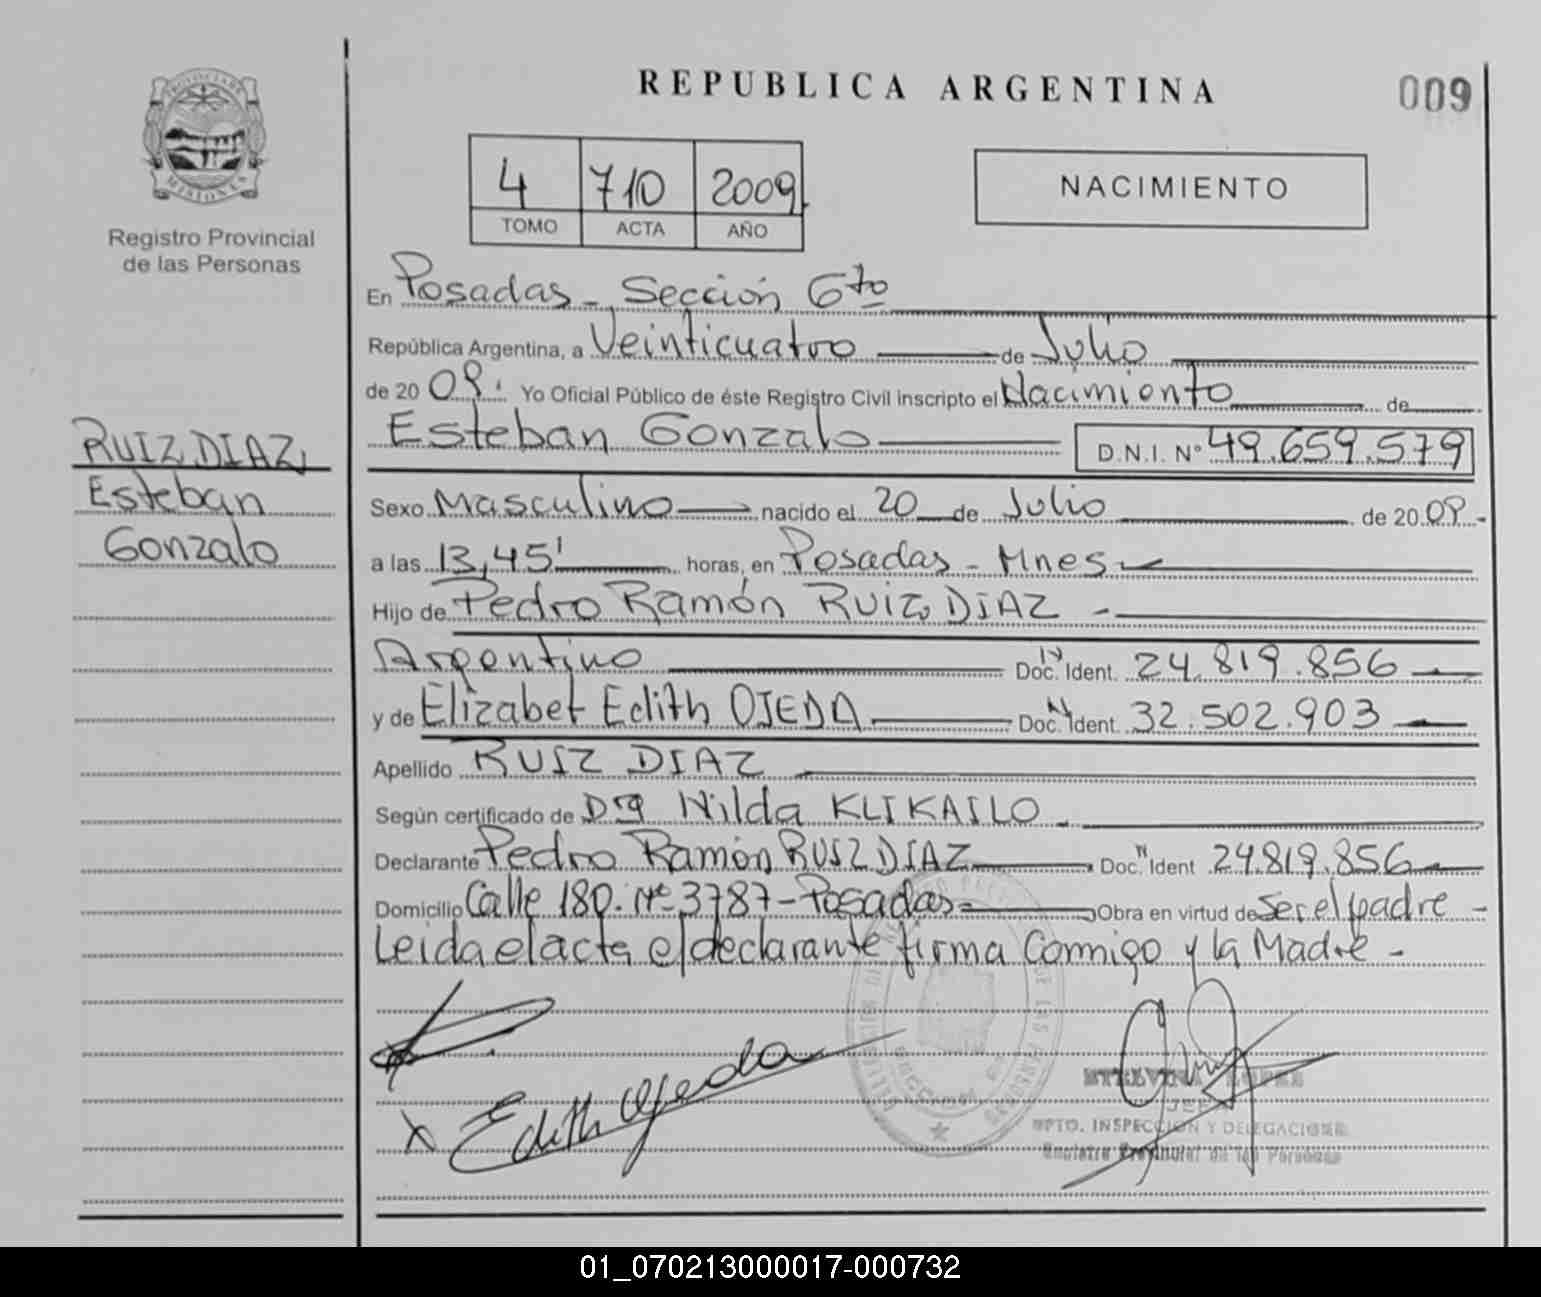 REPUBLICA ARGENTINA
009
PROVINCIA DE MISIONES
Registro Provincial
de las Personas
4 710 2009
TOMO ACTA AÑO
NACIMIENTO
En Posadas - Sección 6to
República Argentina, a Veinticuatro de Julio
de 20 09. Yo Oficial Público de éste Registro Civil inscripto el Nacimiento de
Esteban Gonzalo D.N.I. N° 49.659.579
RUIZ DIAZ,
Esteban
Gonzalo
Sexo Masculino nacido el 20 de Julio de 20 09 -
a las 13,45' horas, en Posadas - Mnes
Hijo de Pedro Ramón RUIZ DIAZ -
Argentino Doc. N Ident. 24.819.856
y de Elizabet Edith OJEDA Doc. N Ident. 32.502.903
Apellido RUIZ DIAZ
Según certificado de Dra Nilda KLIKAILO -
Declarante Pedro Ramón RUIZ DIAZ Doc. N Ident 24.819.856
Domicilio Calle 180. Nº 3787 - Posadas - Obra en virtud de ser el padre -
Leida el acta el declarante firma Conmigo y la Madre -
X Edith Ojeda
JEFA
DPTO. INSPECCION Y DELEGACIONES
Registro Provincial de las Personas
01_070213000017-000732